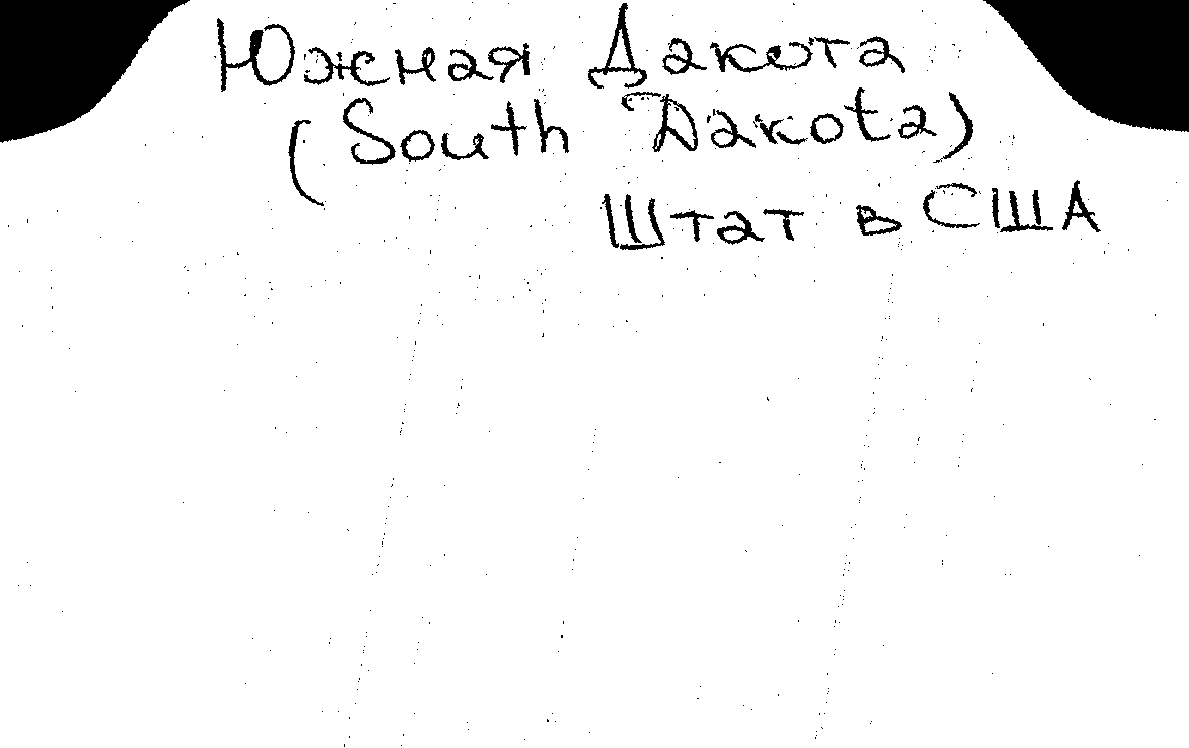 Южная Дакота
(South Dakota)
Штат в США